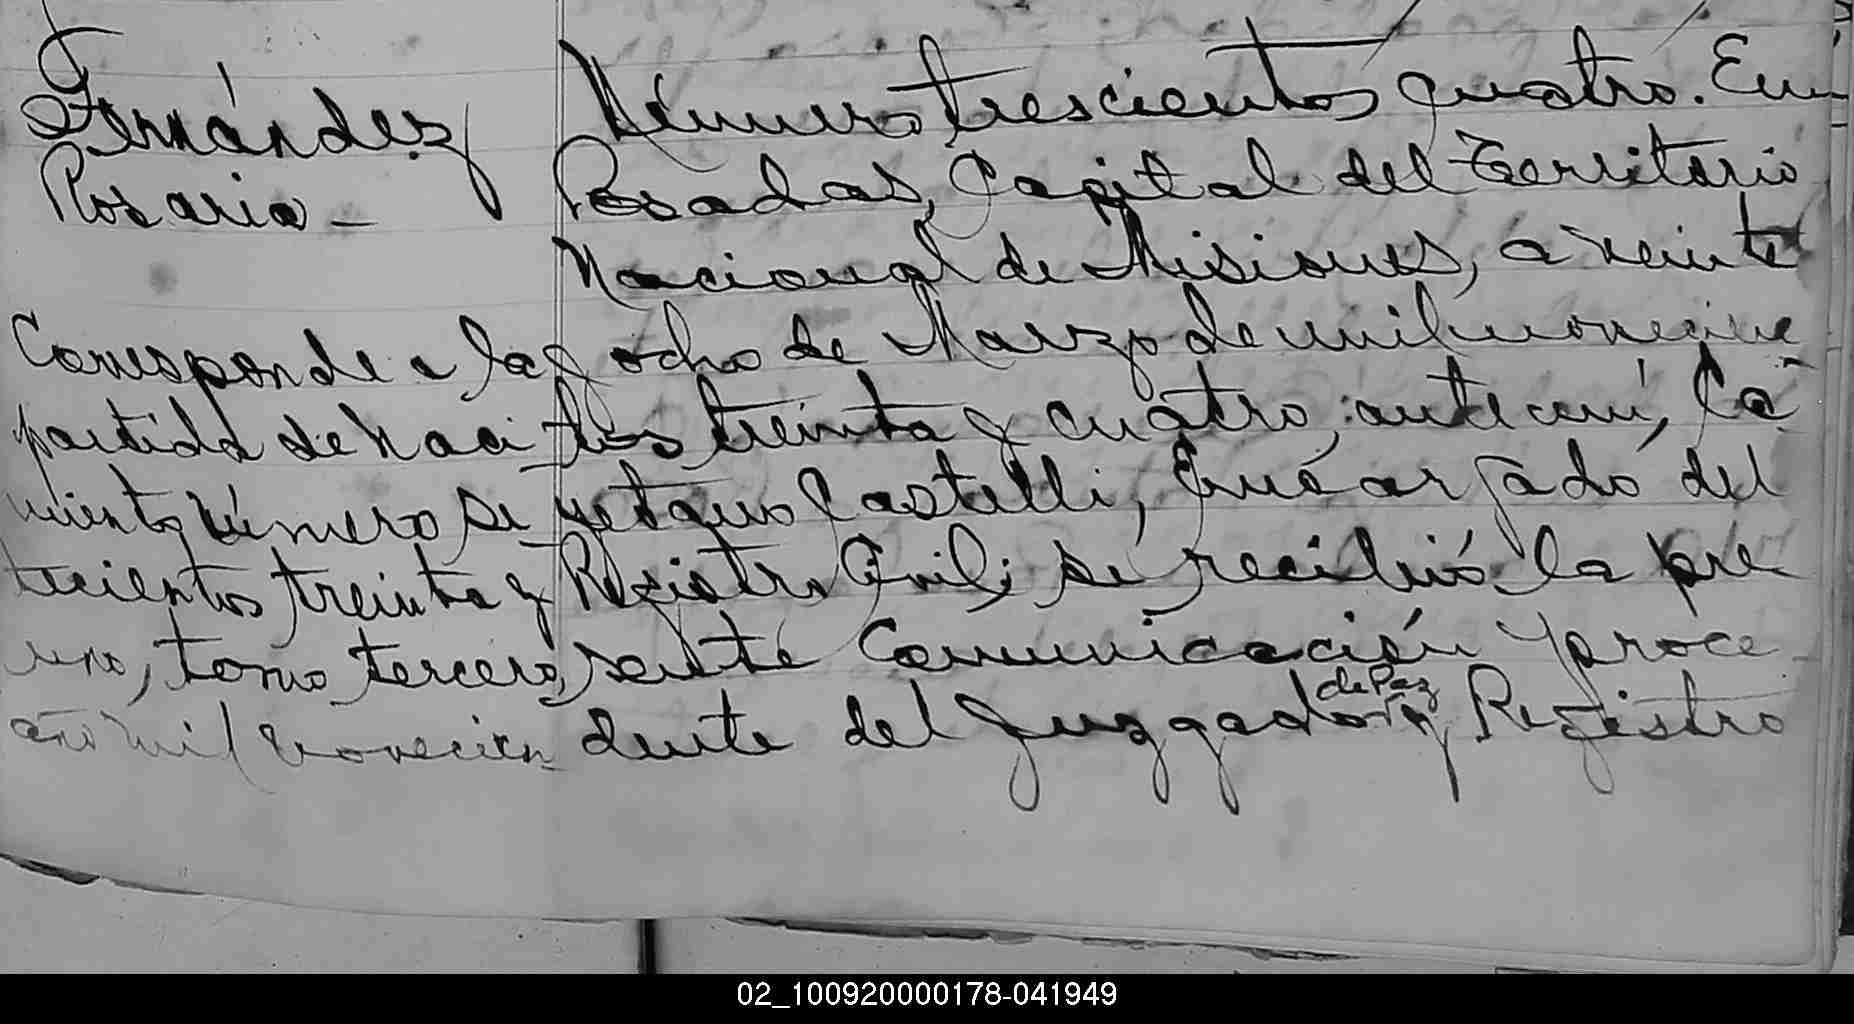 Fernández
Rosario -
Corresponde a la
partida de naci
miento número se
tecientos treinta y
uno, tomo tercero,
año mil novecien
Número trescientos quatro. En
Posadas, Capital del Territorio
Nacional de Misiones, a veinte
y ocho de Marzo de mil novecien
tos treinta y cuatro, ante mi, Ca-
yetano Castelli, Encargado del
Registro Civil, se recibió la pre-
sente Comunicación proce-
dente del Juzgado de Paz y Registro
02_100920000178-041949